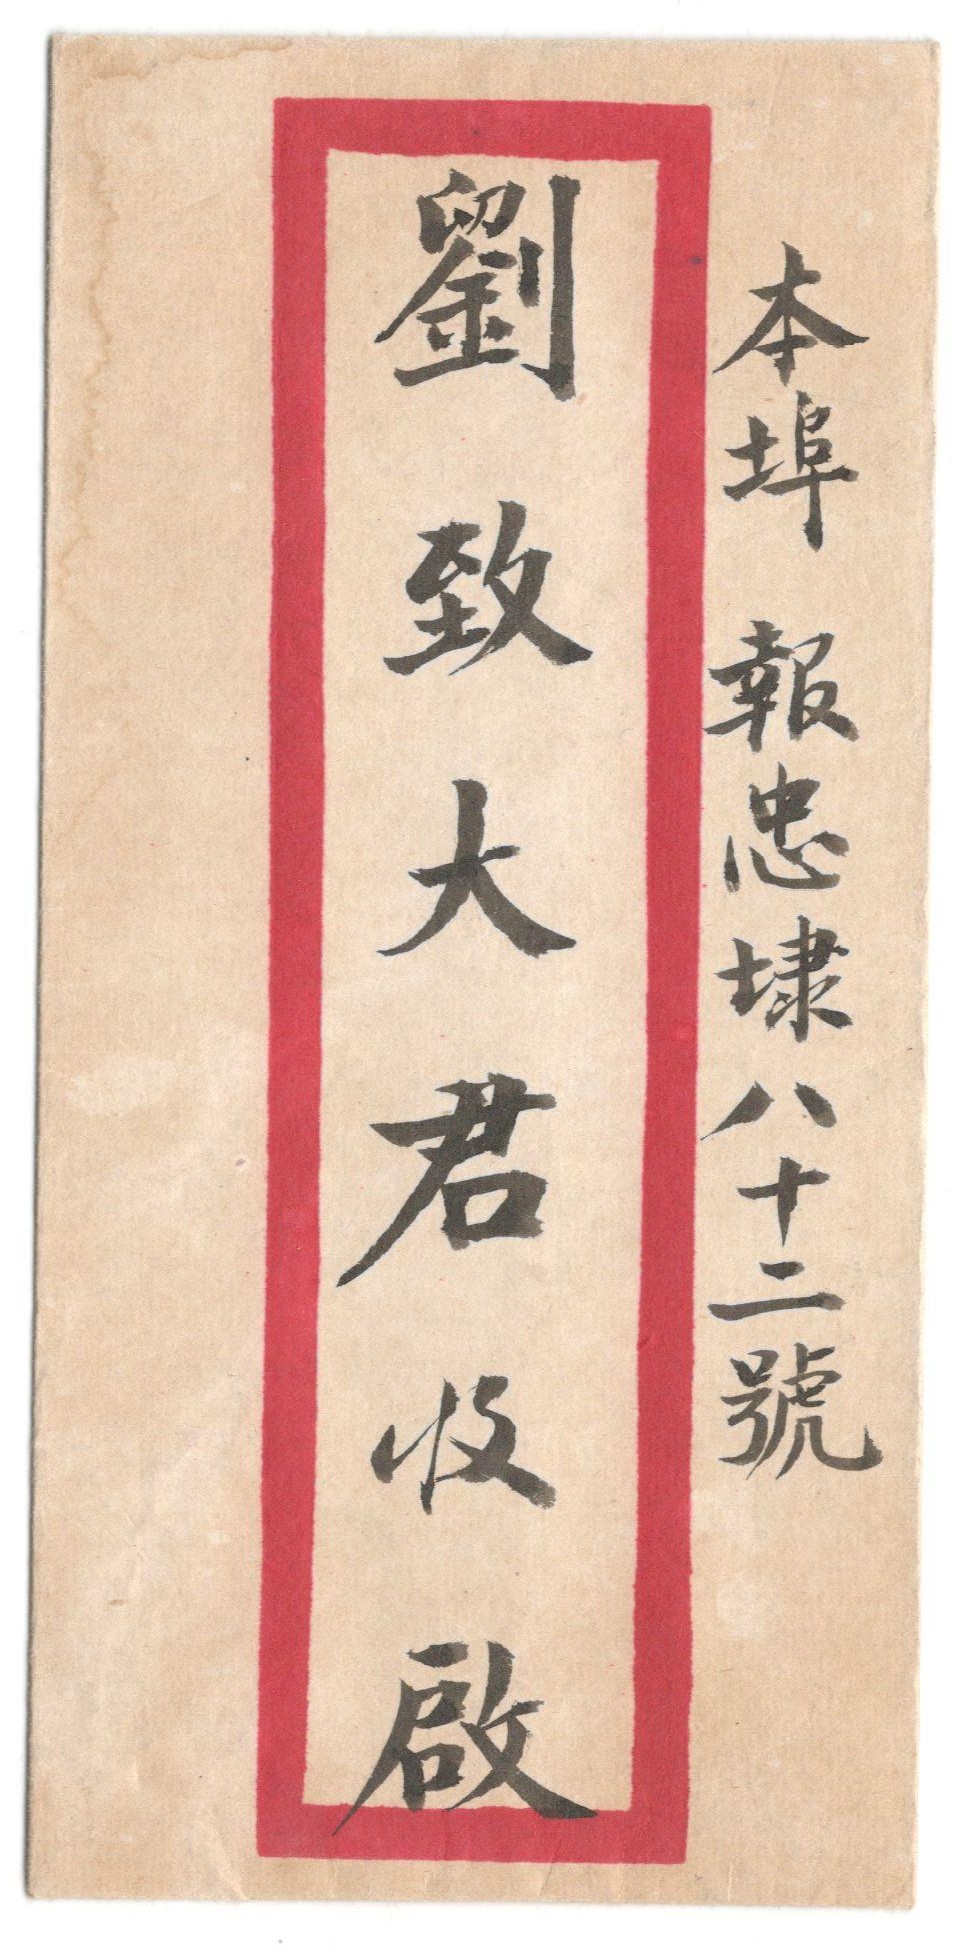 本埠 報忠埭八十二號
劉致大君收啟